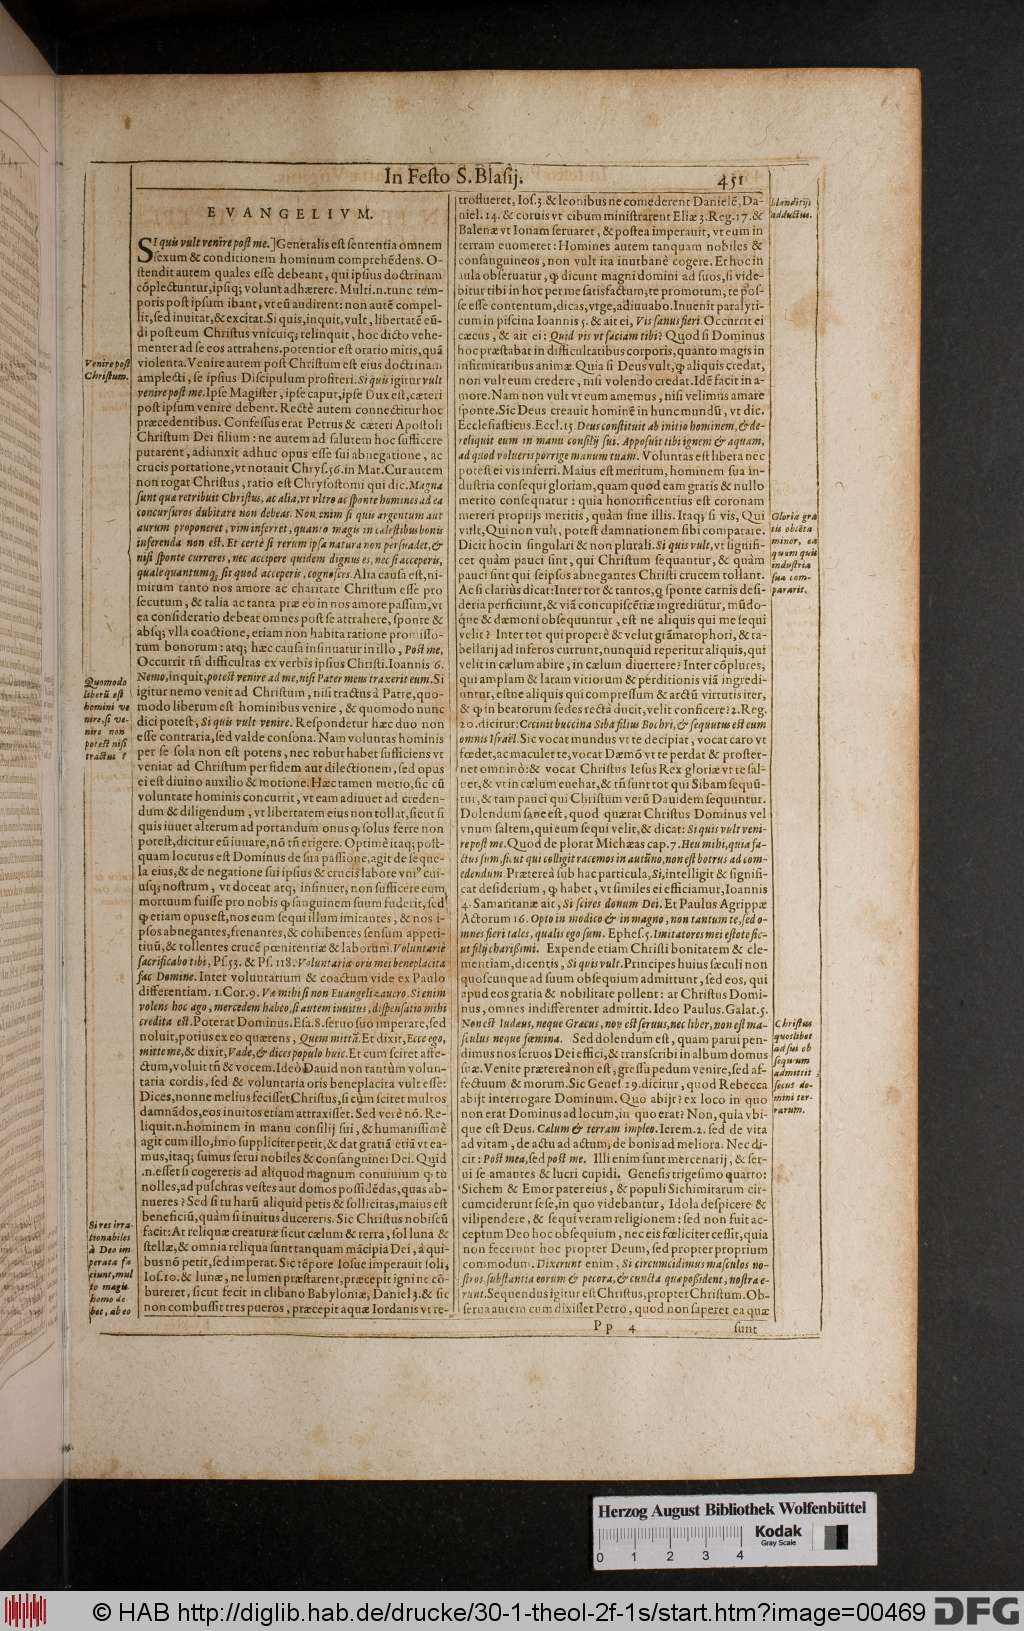 In Festo S. Blasij.
451
EVANGELIVM.
SI quis vult venire post me.] Generalis est sententia omnem
sexum & conditionem hominum comprehēdens. O-
stendit autem quales esse debeant, qui ipsius doctrinam
cōplectuntur, ipsiq; volunt adhærere. Multi .n. tunc tem-
poris post ipsum ibant, vt eū audirent: non autē compel-
lit, sed inuitat, & excitat. Si quis, inquit, vult, libertatē eū-
di post eum Christus vnicuiq; relinquit, hoc dicto vehe-
menter ad se eos attrahens. potentior est oratio mitis, quā
violenta. Venire autem post Christum est eius doctrinam
amplecti, se ipsius Discipulum profiteri. Si quis igitur vult
venire post me. Ipse Magister, ipse caput, ipse Dux est, cæteri
post ipsum venire debent. Rectè autem connectitur hoc
præcedentibus. Confessus erat Petrus & cæteri Apostoli
Christum Dei filium: ne autem ad salutem hoc sufficere
putarent, adiunxit adhuc opus esse sui abnegatione, ac
crucis portatione, vt notauit Chrys. 56. in Mat. Cur autem
non rogat Christus, ratio est Chrysostomi qui dic. Magna
sunt quæ retribuit Christus, ac alia, vt vltro ac sponte homines ad ea
concursuros dubitare non debeas. Non enim si quis argentum aut
aurum proponeret, vim inferret, quanto magis in cælestibus bonis
inferenda non est. Et certè si rerum ipsa natura non persuadet, &
nisi sponte curreres, nec accipere quidem dignus es, nec si acceperis,
quale quantumq; sit quod acceperis, cognosces. Alia causa est, ni-
mirum tanto nos amore ac charitate Christum esse pro
secutum, & talia ac tanta præ eo in nos amore passum, vt
ea consideratio debeat omnes post se attrahere, sponte &
absq; vlla coactione, etiam non habita ratione promisso-
rum bonorum: atq; hæc causa insinuatur in illo, Post me,
Occurrit tñ difficultas ex verbis ipsius Christi. Ioannis 6.
Nemo, inquit, potest venire ad me, nisi Pater meus traxerit eum. Si
igitur nemo venit ad Christum, nisi tractus à Patre, quo-
modo liberum est hominibus venire, & quomodo nunc
dici potest, Si quis vult venire. Respondetur hæc duo non
esse contraria, sed valde consona. Nam voluntas hominis
per se sola non est potens, nec robur habet sufficiens vt
veniat ad Christum per fidem aut dilectionem, sed opus
ei est diuino auxilio & motione. Hæc tamen motio, sic cū
voluntate hominis concurrit, vt eam adiuuet ad creden-
dum & diligendum, vt libertatem eius non tollat, sicut si
quis iuuet alterum ad portandum onus ꝙ solus ferre non
potest, dicitur eū iuuare, nō tñ erigere. Optimè itaq; post-
quam locutus est Dominus de sua passione, agit de seque-
la eius, & de negatione sui ipsius & crucis labore vniꝰ cui-
usq; nostrum, vt doceat atq; insinuet, non sufficere eum
mortuum fuisse pro nobis ꝙ sanguinem suum fuderit, sed
ꝙ etiam opus est, nos eum sequi illum imitantes, & nos i-
psos abnegantes, frenantes, & cohibentes sensum appeti-
tiuū, & tollentes crucē pœnitentiæ & laborum. Voluntariè
sacrificabo tibi, Ps. 53. & Ps. 118. Voluntaria oris mei beneplacita
fac Domine. Inter voluntarium & coactum vide ex Paulo
differentiam. 1. Cor. 9. Væ mihi si non Euangelizauero. Si enim
volens hoc ago, mercedem habeo, si autem inuitus, dispensatio mihi
credita est. Poterat Dominus. Esa. 8. seruo suo imperare, sed
noluit, potius ex eo quærens, Quem mittā. Et dixit, Ecce ego,
mitte me, & dixit, Vade, & dices populo huic. Et cum sciret affe-
ctum, voluit tñ & vocem. Ideò Dauid non tantùm volun-
taria cordis, sed & voluntaria oris beneplacita vult esse:
Dices, nonne melius fecisset Christus, si eum sciret multos
damnādos, eos inuitos etiam attraxisset. Sed verè nō. Re-
liquit .n. hominem in manu consilij sui, & humanissimè
agit cum illo, imo suppliciter petit, & dat gratiā etiā vt ea-
mus, itaq; sumus serui nobiles & consanguinei Dei. Quid
.n. esset si cogereris ad aliquod magnum conuiuium ꝙ tu
nolles, ad pulchras vestes aut domos possidēdas, quas ab-
nueres? Sed si tu harū aliquid petis & sollicitas, maius est
beneficiū, quàm si inuitus ducereris. Sic Christus nobiscū
facit: At reliquæ creaturæ sicut cælum & terra, sol luna &
stellæ, & omnia reliqua sunt tanquam mācipia Dei, à qui-
bus nō petit, sed imperat. Sic tēpore Iosue imperauit soli,
Ios. 10. & lunæ, ne lumen præstarent, præcepit igni ne cō-
bureret, sicut fecit in clibano Babyloniæ, Daniel 3. & sic
non combussit tres pueros, præcepit aquæ Iordanis vt re-
Venire post
Christum.
Quomodo
liberū est
homini ve
nire, si ve-
nire non
potest nisi
tractus?
Si res irra-
tionabiles
à Deo im
perata fa
ciunt, mul
to magis
homo de
bet, ab eo
troflueret, Ios. 3. & leonibus ne comederent Danielē, Da-
niel. 14. & coruis vt cibum ministrarent Eliæ 3. Reg. 17. &
Balenæ vt Ionam seruaret, & postea imperauit, vt eum in
terram euomeret: Homines autem tanquam nobiles &
consanguineos, non vult ita inurbanè cogere. Et hoc in
aula obseruatur, ꝙ dicunt magni domini ad suos, si vide-
bitur tibi in hoc per me satisfactum, te promotum, te pos-
se esse contentum, dicas, vrge, adiuuabo. Inuenit paralyti-
cum in piscina Ioannis 5. & ait ei, Vis sanus fieri. Occurrit ei
cæcus, & ait ei: Quid vis vt faciam tibi? Quod si Dominus
hoc præstabat in difficultatibus corporis, quanto magis in
infirmitatibus animæ. Quia si Deus vult, ꝙ aliquis credat,
non vult eum credere, nisi volendo credat. Idē facit in a-
more. Nam non vult vt eum amemus, nisi velimus amare
sponte. Sic Deus creauit hominē in hunc mundū, vt dic.
Ecclesiasticus. Eccl. 15. Deus constituit ab initio hominem, & de-
reliquit eum in manu consilij sui. Apposuit tibi ignem & aquam,
ad quod volueris porrige manum tuam. Voluntas est libera nec
potest ei vis inferri. Maius est meritum, hominem sua in-
dustria consequi gloriam, quam quod eam gratis & nullo
merito consequatur: quia honorificentius est coronam
mereri proprijs meritis, quàm sine illis. Itaq; si vis, Qui
vult, Qui non vult, potest damnationem sibi comparare.
Dicit hoc in singulari & non plurali. Si quis vult, vt signifi-
cet quàm pauci sint, qui Christum sequantur, & quàm
pauci sint qui seipsos abnegantes Christi crucem tollant.
Ac si clariùs dicat: Inter tot & tantos, q sponte carnis desi-
deria perficiunt, & viā concupiscētiæ ingrediūtur, mūdo-
que & dæmoni obsequuntur, est ne aliquis qui me sequi
velit? Inter tot qui properè & velut grāmatophori, & ta-
bellarij ad inferos currunt, nunquid reperitur aliquis, qui
velit in cælum abire, in cælum diuertere? Inter cōplures,
qui amplam & latam vitiorum & perditionis viā ingredi-
untur, estne aliquis qui compressum & arctū virtutis iter,
& ꝙ in beatorum sedes rectà ducit, velit conficere? 2. Reg.
20. dicitur: Cecinit buccina Siba filius Bochri, & sequutus est eum
omnis Israël. Sic vocat mundus vt te decipiat, vocat caro vt
fœdet, ac maculet te, vocat Dæmō vt te perdat & proster-
net omninò: & vocat Christus Iesus Rex gloriæ vt te sal-
uet, & vt in cælum euehat, & tñ sunt tot qui Sibam sequū-
tur, & tam pauci qui Christum verū Dauidem sequuntur.
Dolendum sane est, quod quærat Christus Dominus vel
vnum saltem, qui eum sequi velit, & dicat: Si quis vult veni-
re post me. Quod deplorat Michæas cap. 7. Heu mihi, quia fa-
ctus sum, sicut qui colligit racemos in autūno, non est botrus ad com-
edendum. Prætereà sub hac particula, Si, intelligit & signifi-
cat desiderium, ꝙ habet, vt similes ei efficiamur, Ioannis
4. Samaritanæ ait, Si scires donum Dei. Et Paulus Agrippæ
Actorum 16. Opto in modico & in magno, non tantum te, sed o-
mnes fieri tales, qualis ego sum. Ephes. 5. Imitatores mei estote sic-
ut filij charissimi. Expende etiam Christi bonitatem & cle-
mentiam, dicentis, Si quis vult. Principes huius sæculi non
quoscunque ad suum obsequium admittunt, sed eos, qui
apud eos gratia & nobilitate pollent: at Christus Domi-
nus, omnes indifferenter admittit. Ideo Paulus. Galat. 5.
Non est Iudæus, neque Græcus, non est seruus, nec liber, non est ma-
sculus neque fœmina. Sed dolendum est, quam parui pen-
dimus nos seruos Dei effici, & transcribi in album domus
suæ. Venire prætereà non est, gressu pedum venire, sed af-
fectuum & morum. Sic Genes. 29. dicitur, quod Rebecca
abijt interrogare Dominum. Quo abijt? ex loco in quo
non erat Dominus ad locum, in quo erat? Non, quia vbi-
que est Deus. Cælum & terram impleo. Ierem. 2. sed de vita
ad vitam, de actu ad actum, de bonis ad meliora. Nec di-
cit: Post mea, sed post me. Illi enim sunt mercenarij, & ser-
ui se amantes & lucri cupidi. Genesis trigesimo quarto:
Sichem & Emor pater eius, & populi Sichimitarum cir-
cumciderunt sese, in quo videbantur, Idola despicere &
vilipendere, & sequi veram religionem: sed non fuit ac-
ceptum Deo hoc obsequium, nec eis fœliciter cessit, quia
non fecerunt hoc propter Deum, sed propter proprium
commodum. Dixerunt enim, Si circumcidimus masculos no-
stros, substantia eorum & pecora, & cuncta quæ possident, nostra e-
runt. Sequendus igitur est Christus, propter Christum. Ob-
serua autem cum dixisset Petro, quod non saperet ea quæ
blanditijs
adductus.
Gloria gra
tis obtēta
minor, ea
quam quis
industria
sua com-
pararit.
Christus
quoslibet
ad sui ob
sequium
admittit,
secus do-
mini ter-
rarum.
Pp 4
sunt
Herzog August Bibliothek Wolfenbüttel
Kodak
Gray Scale
0 1 2 3 4
© HAB http://diglib.hab.de/drucke/30-1-theol-2f-1s/start.htm?image=00469
DFG